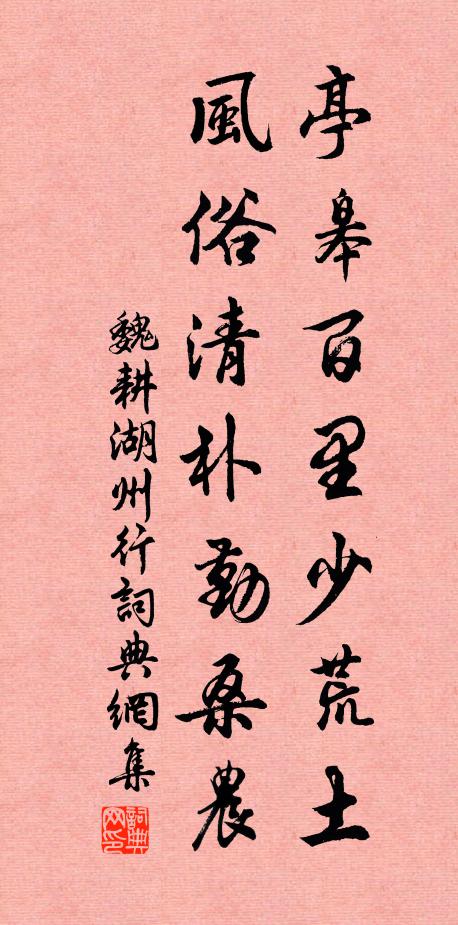 亭皋百里少荒土
風俗清朴勤桑農
魏耕湖州行詞典網集
詞典网印